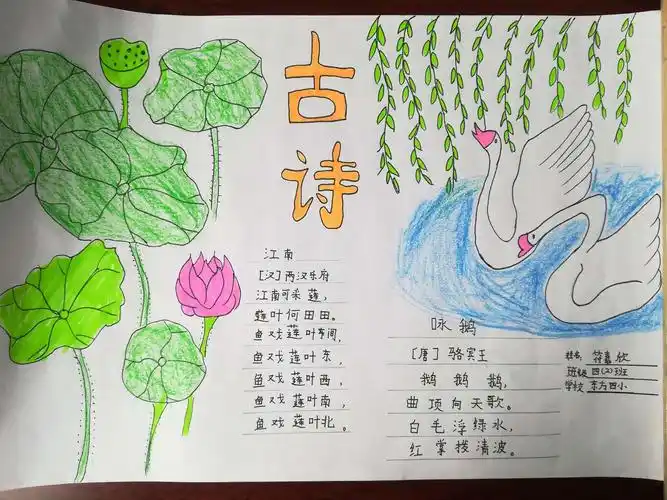 古诗
江南
[汉]两汉乐府
江南可采莲,
莲叶何田田。
鱼戏莲叶间,
鱼戏莲叶东,
鱼戏莲叶西,
鱼戏莲叶南,
鱼戏莲叶北。
咏鹅
[唐]骆宾王
鹅鹅鹅,
曲项向天歌。
白毛浮绿水,
红掌拨清波。
姓名 符嘉欣
班级 四(2)班
学校 东方四小